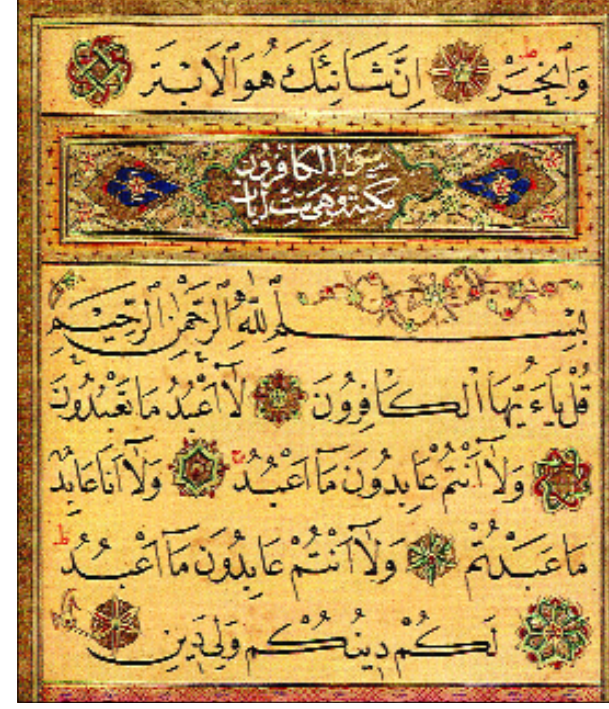 وَانْحَرْ اِنَّ شَانِئَكَ هُوَ الْاَبْتَرُ
سورة الكافرون
مكية وهي ست آيات
بِسْمِ اللّٰهِ الرَّحْمٰنِ الرَّحِيمِ
قُلْ يَاءَيُّهَا الْكَافِرُونَ لَا اَعْبُدُ مَا تَعْبُدُونَ
وَلَا اَنْتُمْ عَابِدُونَ مَا اَعْبُدُ وَلَا اَنَا عَابِدٌ
مَا عَبَدْتُمْ وَلَا اَنْتُمْ عَابِدُونَ مَا اَعْبُدُ
لَكُمْ دِينُكُمْ وَلِيَ دِينِ